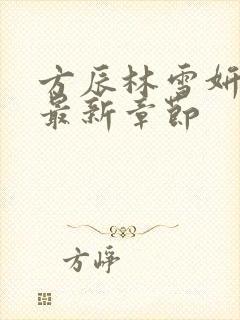 方辰林雪妍
最新章节
方峥